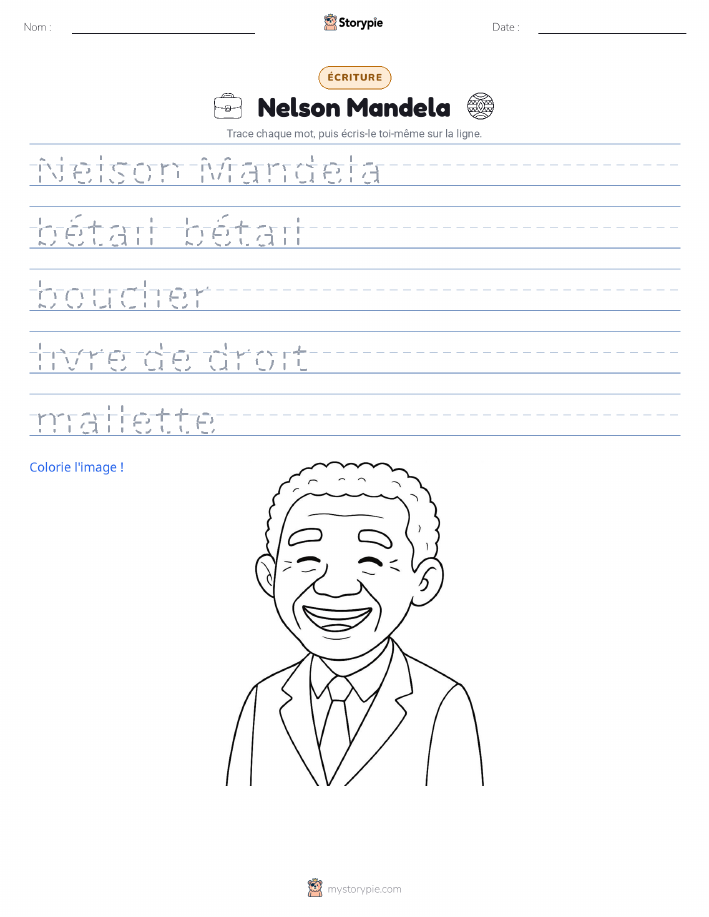 Nom :
Storypie
Date :
ÉCRITURE
Nelson Mandela
Trace chaque mot, puis écris-le toi-même sur la ligne.
Nelson Mandela
bétail bétail
boucher
livre de droit
mallette
Colorie l'image !
mystorypie.com